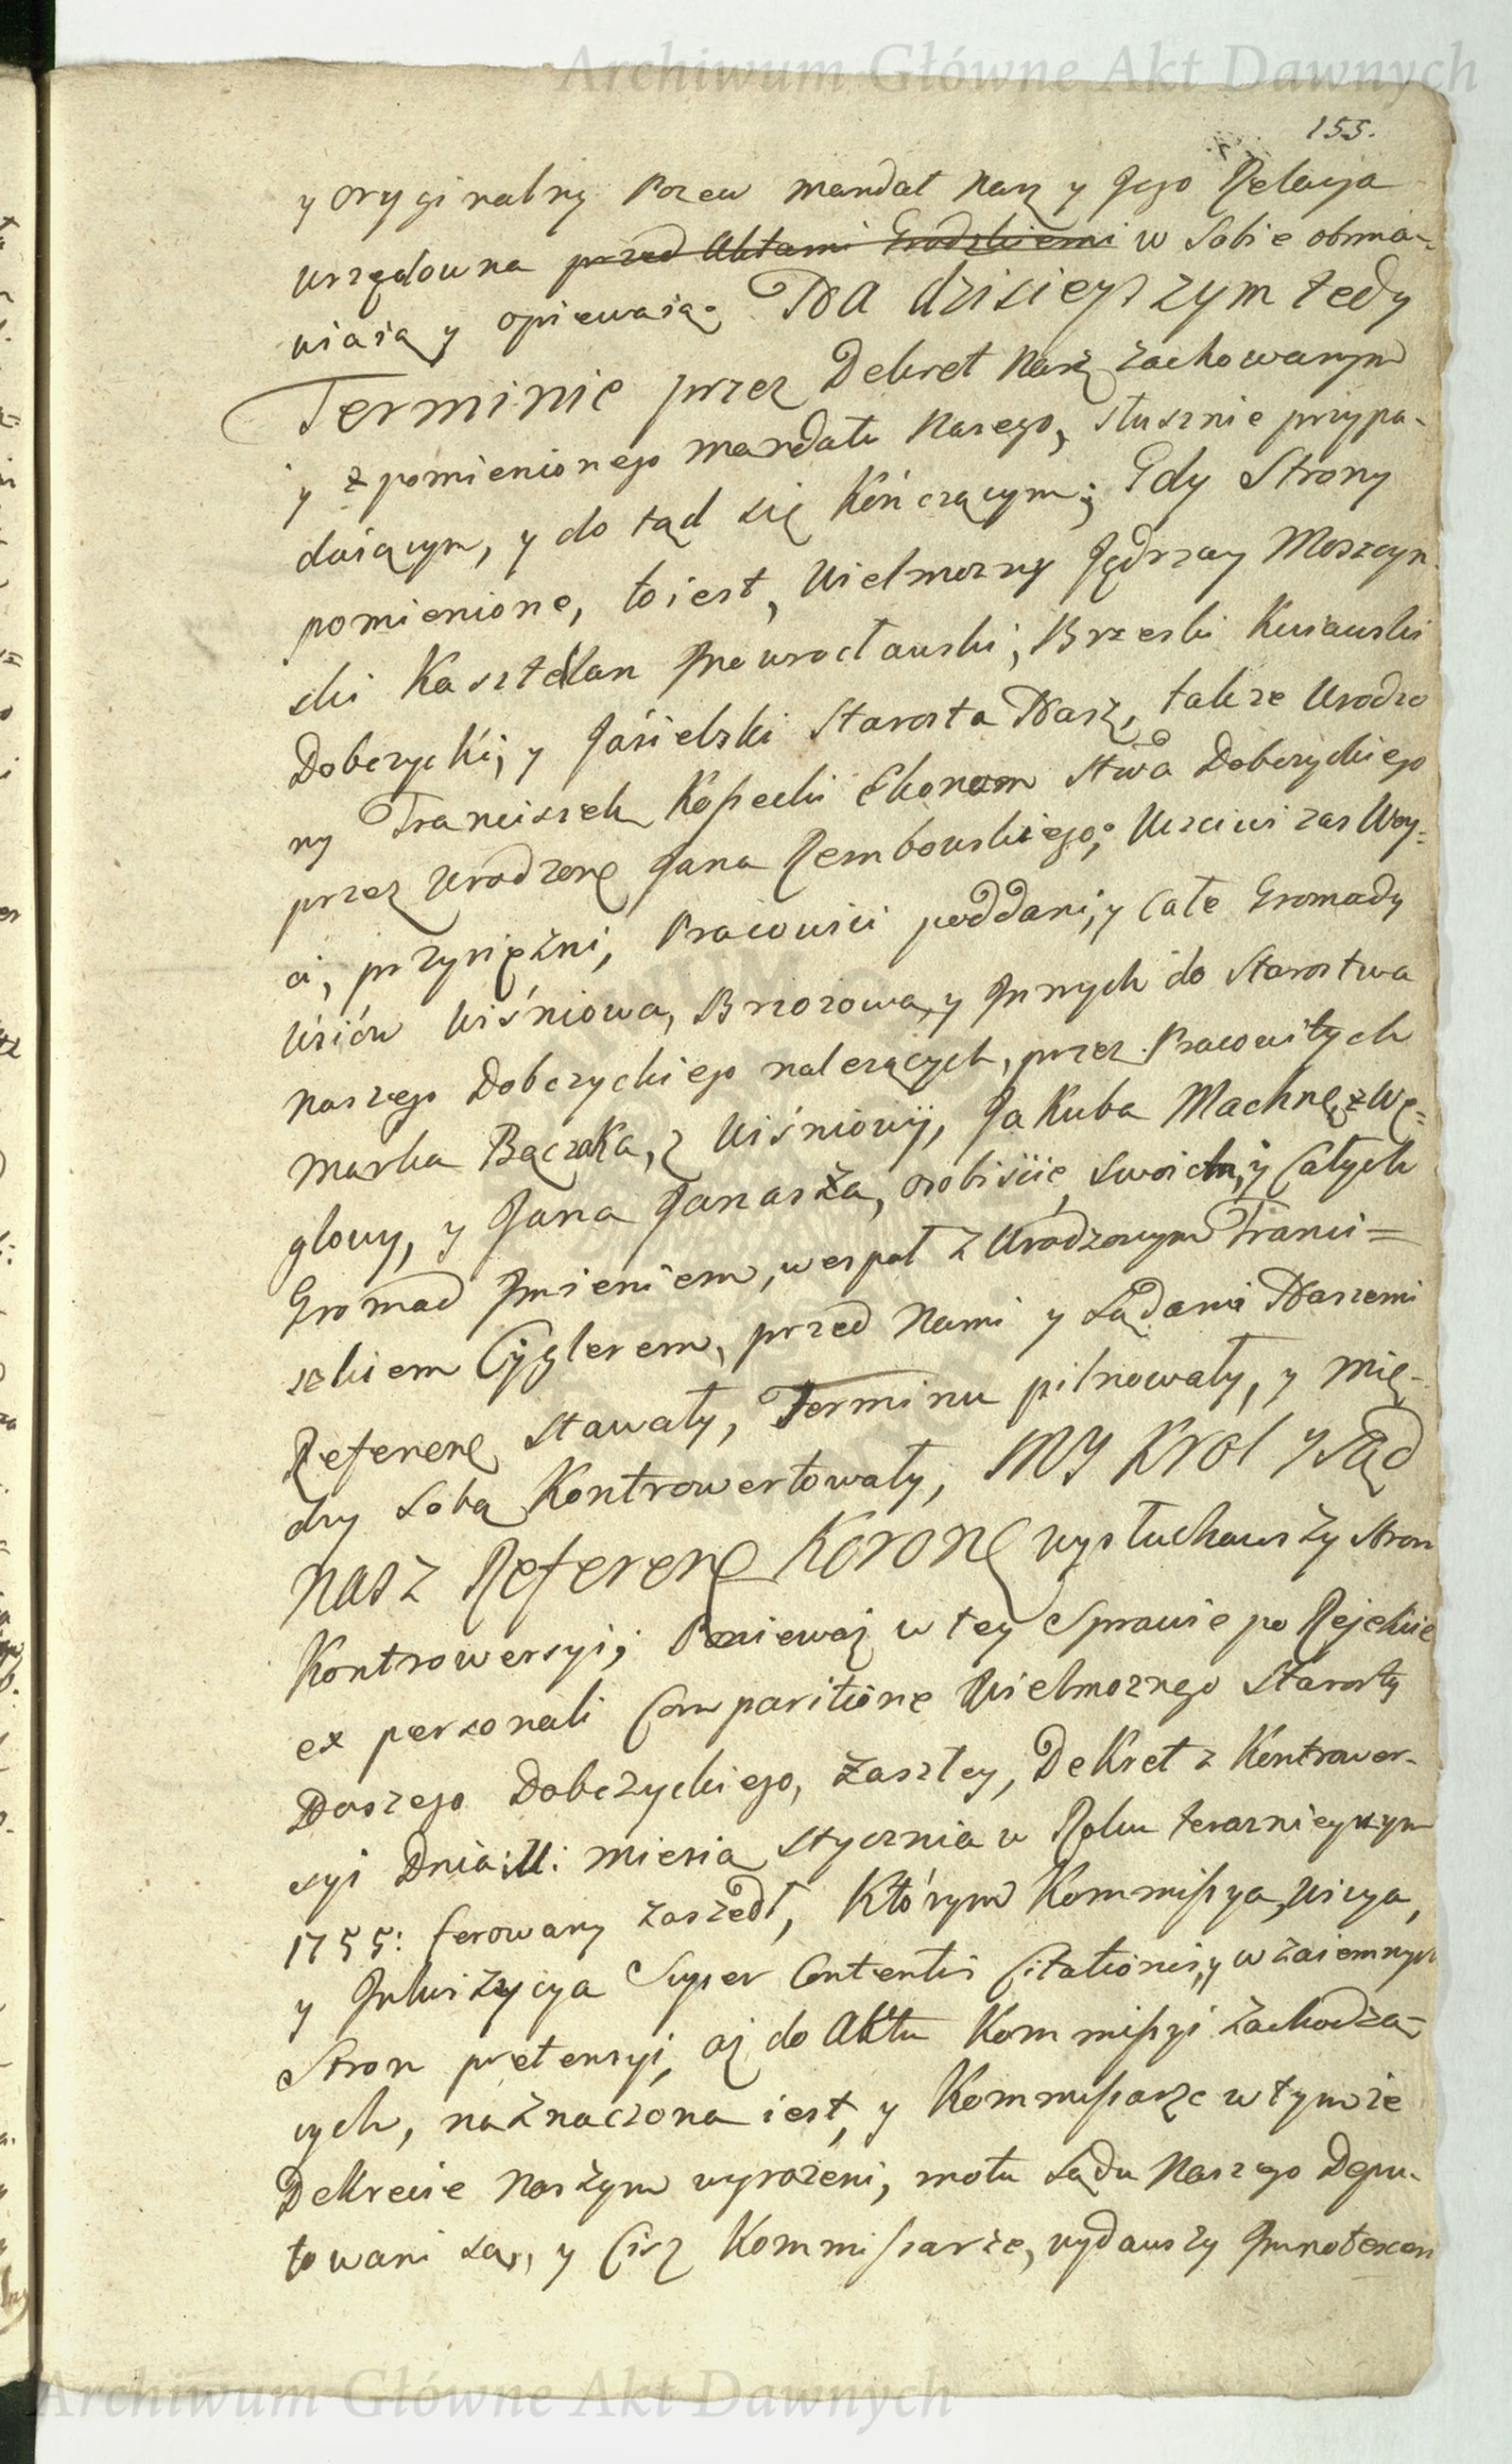 Archiwum Główne Akt Dawnych
155.
y oryginalny Pozew mandat Nasz y Jego Relacja
urzędowna przed Aktami Grodzkiemi w Sobie obma-
wiaią y opiewaią. Na dzisieyszym tedy
Terminie przez Dekret Nasz zachowanym
y z pomienionego mandatu Naszego, słusznie przypa-
daiącym, y do tąd się Kończącym; Gdy Strony
pomienione, toiest, Wielmozny Jędrzey Moszczyn-
ski Kasztelan Inowrocławski, Brzeski Kuiawski
Dobczycki, y Jasielski Starosta Nasz, takze Urodzo
ny Franciszek Kossecki Ekonom Stwa Dobczyckiego
przez Urodzonę Jana Rembowskiego; Uczciwi zas Woy-
ci, przysięzni, Pracowici poddani, y Całe Gromady
Wsiów Wiśniowa, Brzozowa, y Innych do Starostwa
naszego Dobczyckiego nalezących, przez Pracowitych
Marka Bączaka, z Wiśniowy, Jakuba Machnę, z Wę-
glowy, y Jana Janasza, osobiście, swoich, y Całych
Gromad Imieniem, wespoł z Urodzonym Franci=
szkiem Cyglerem, przed Nami y Sądami Naszemi
Referenę stawały, Terminu pilnowały, y mię-
dzy sobą Kontrowertowały, MY Krol y Sąd
nasz Referenę Koronę wysłuchawszy Stron
Kontrowersyi; Poniewaz w tey Sprawie po Rejekcie
ex personali Comparitione Wielmoznego Starosty
Naszego Dobczyckiego, zaszłey, DeKret z Kontrower-
syi Dnia: 11: miesia Stycznia w Roku teraznieyszym
1755: ferowany zaszedł, Którym Kommissya, Wizya,
y Inkwizycya Super Contentis Citationis, y wzaiemnych
Stron pretensyi, az do AKtu Kommissyi zachodzą-
cych, naznaczona iest, y Kommissarze w tymze
DeKrecie Naszym wyrazeni, motu Sądu Naszego Depu-
towani są, y Ciz Kommissarze, wydawszy Innotescen
Archiwum Główne Akt Dawnych